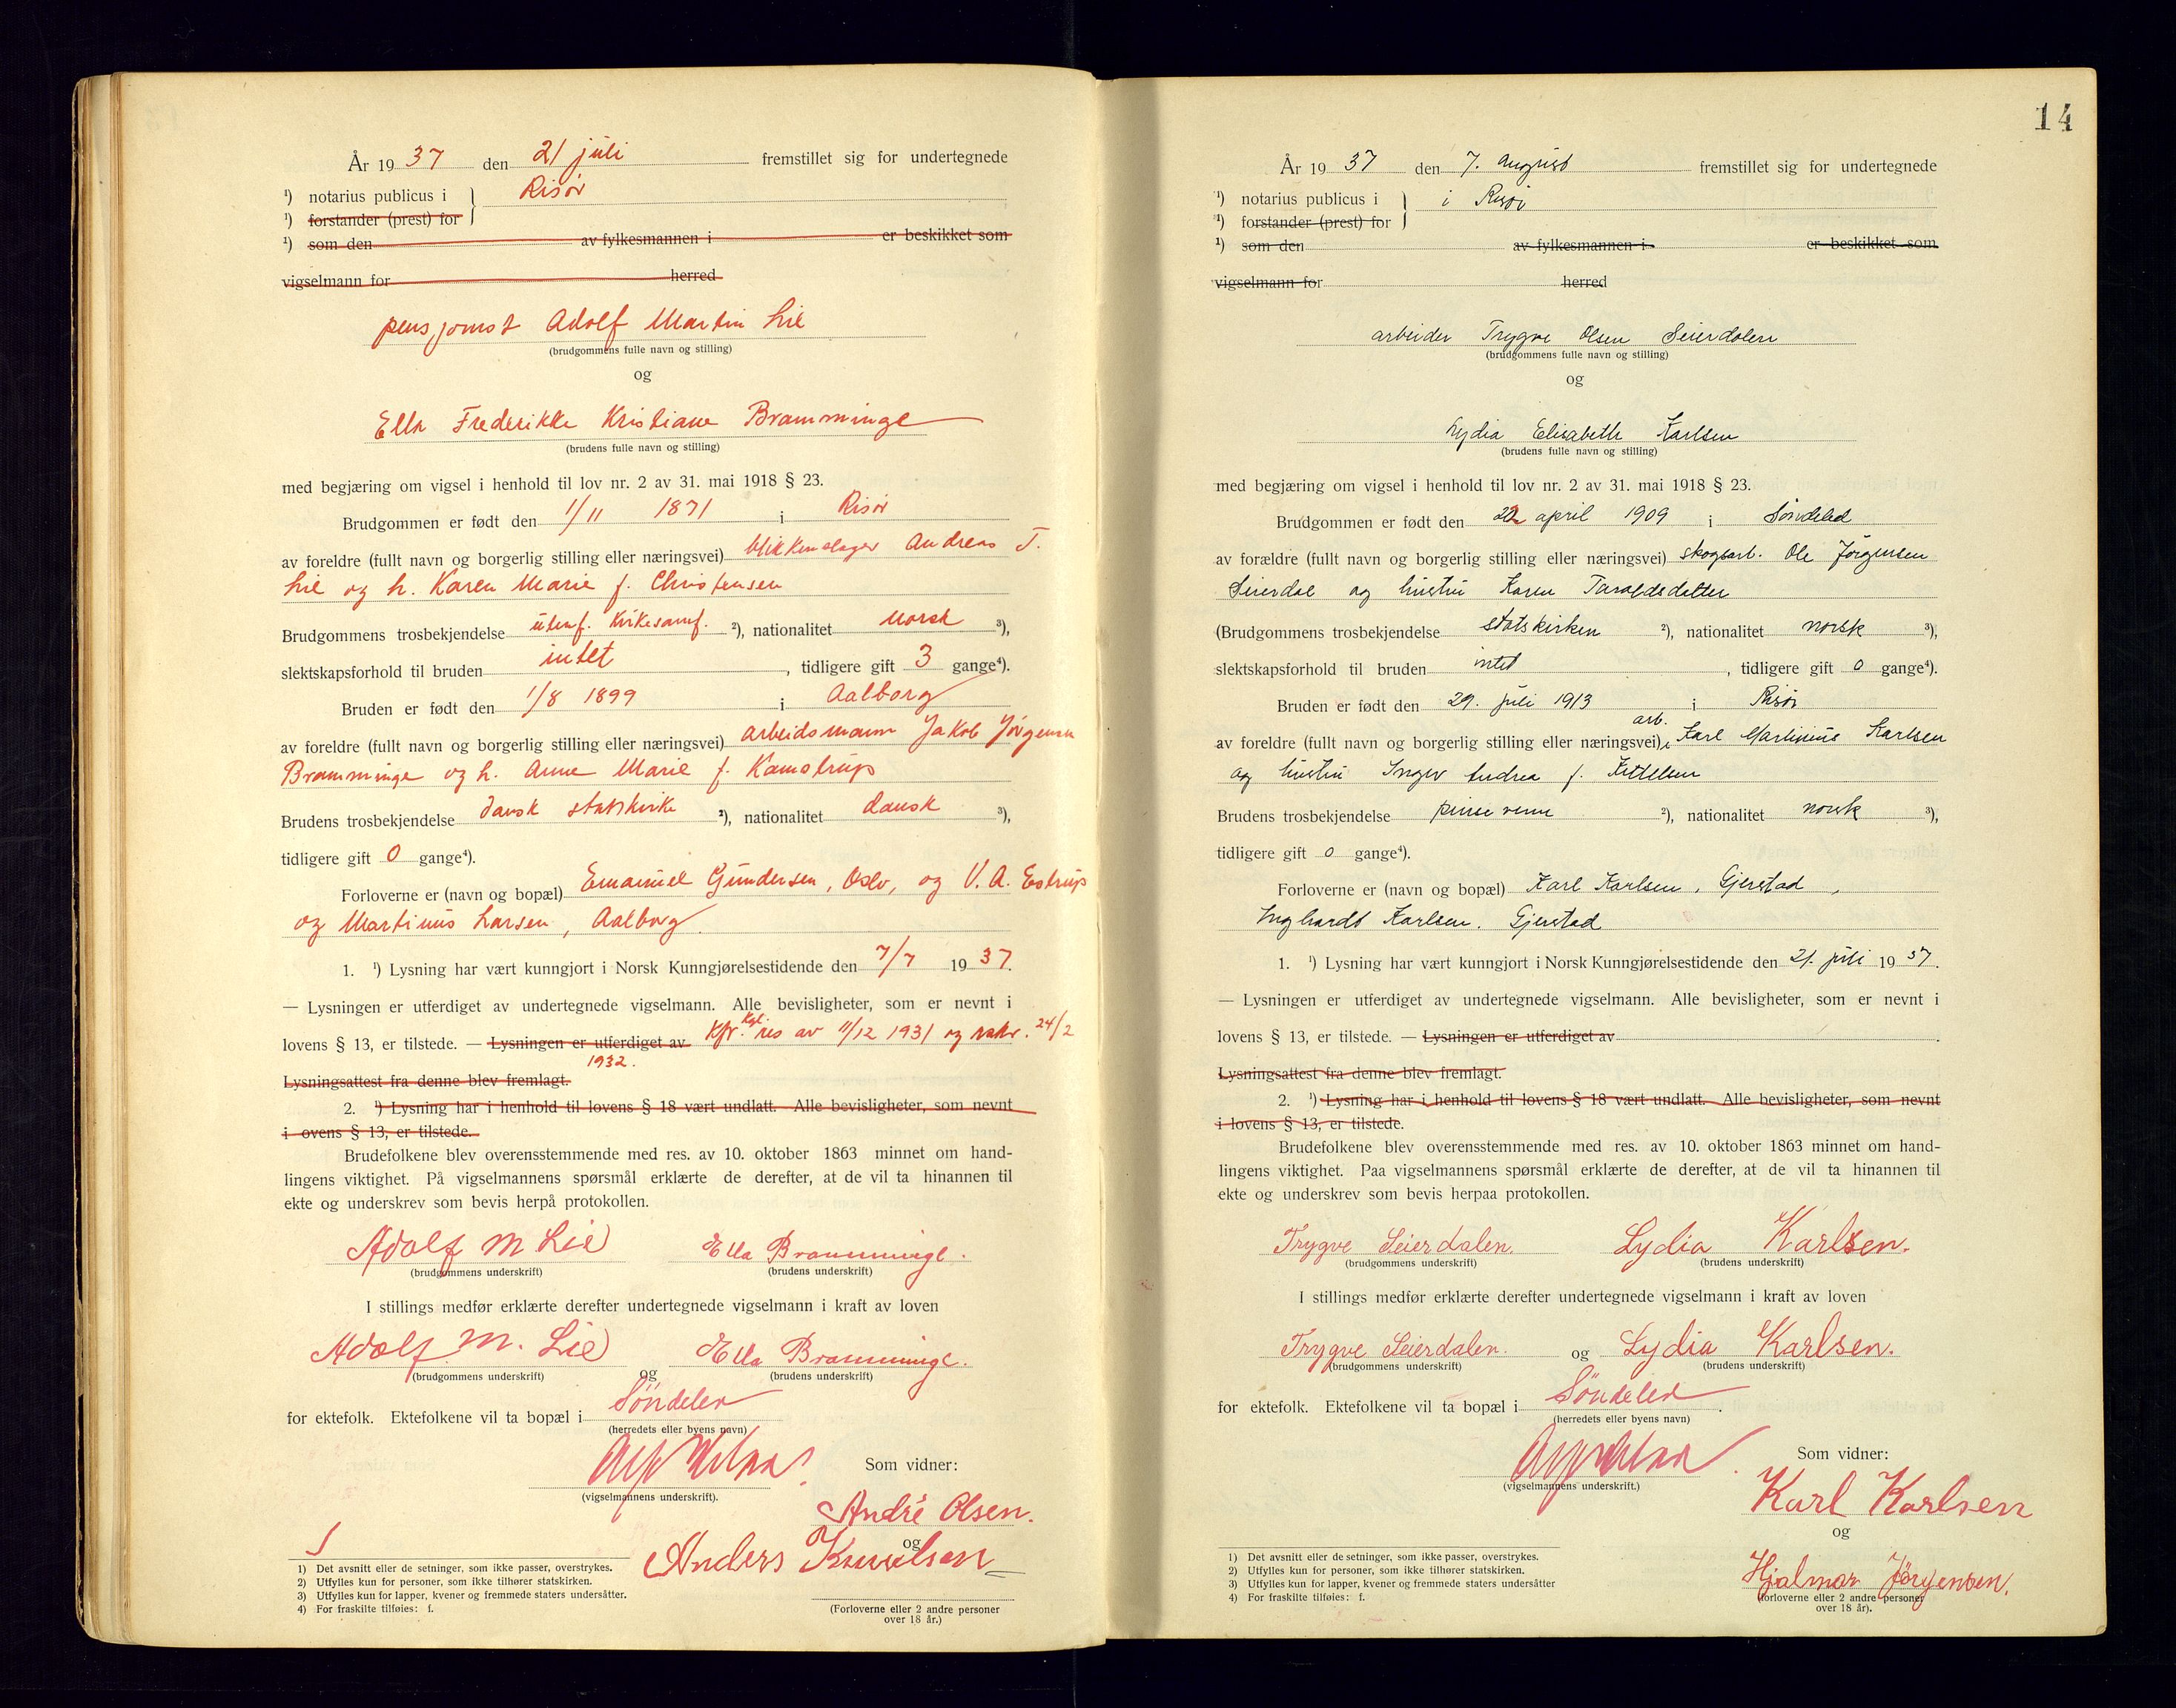 År 19 37 den 21 juli fremstillet sig for undertegnede
¹) notarius publicus i Risör
¹) forstander (prest) for
¹) som den av fylkesmannen i er beskikket som
vigselmann for herred
pensjonist Adolf Martin Lie
(brudgommens fulle navn og stilling)
og
Ella Frederikke Kristiane Bramminge
(brudens fulle navn og stilling)
med begjæring om vigsel i henhold til lov nr. 2 av 31. mai 1918 § 23.
Brudgommen er født den 1/11 1871 i Risör
av foreldre (fullt navn og borgerlig stilling eller næringsvei) blikkenslager Andreas T.
Lie og h. Karen Marie f. Christensen
Brudgommens trosbekjendelse utenf. kirkesamf. ²), nationalitet norsk ³),
slektskapsforhold til bruden intet, tidligere gift 3 gange⁴).
Bruden er født den 1/8 1899 i Aalborg
av foreldre (fullt navn og borgerlig stilling eller næringsvei) arbeidsmann Jakob Jörgensen
Bramminge og h. Anne Marie f. Kamstrup
Brudens trosbekjendelse dansk statskirke ²), nationalitet dansk ³),
tidligere gift 0 gange⁴).
Forloverne er (navn og bopæl) Emanuel Gundersen, Oslo, og V. A. Estrup
og Martinus Larsen, Aalborg.
1. ¹) Lysning har vært kunngjort i Norsk Kunngjørelsestidende den 7/7 19 37.
— Lysningen er utferdiget av undertegnede vigselmann. Alle bevisligheter, som er nevnt i
lovens § 13, er tilstede. — Lysningen er utferdiget av Kfr. Kgl. res av 11/12 1931 og 24/2
1932.
Lysningsattest fra denne blev fremlagt.
2. ¹) Lysning har i henhold til lovens § 18 vært undlatt. Alle bevisligheter, som nevnt
i ovens § 13, er tilstede.
Brudefolkene blev overensstemmende med res. av 10. oktober 1863 minnet om hand-
lingens viktighet. På vigselmannens spørsmål erklærte de derefter, at de vil ta hinannen til
ekte og underskrev som bevis herpå protokollen.
Adolf M Lie Ella Bramminge.
(brudgommens underskrift) (brudens underskrift)
I stillings medfør erklærte derefter undertegnede vigselmann i kraft av loven
Adolf M. Lie og Ella Bramminge.
(brudgommens underskrift) (brudens underskrift)
for ektefolk. Ektefolkene vil ta bopæl i Söndeled
(herredets eller byens navn)
Som vidner:
(vigselmannens underskrift).
André Olsen.
og
Anders Knudsen
(Forloverne eller 2 andre personer
over 18 år.)
1) Det avsnitt eller de setninger, som ikke passer, overstrykes.
2) Utfylles kun for personer, som ikke tilhører statskirken.
3) Utfylles kun for lapper, kvener og fremmede staters undersåtter.
4) For fraskilte tilføies: f.
14
År 19 37 den 7. august fremstillet sig for undertegnede
¹) notarius publicus i i Risör
¹) forstander (prest) for
¹) som den av fylkesmannen i er beskikket som
vigselmann for herred
arbeider Trygve Olsen Seierdalen
(brudgommens fulle navn og stilling)
og
Lydia Elisabeth Karlsen
(brudens fulle navn og stilling)
med begjæring om vigsel i henhold til lov nr. 2 av 31. mai 1918 § 23.
Brudgommen er født den 22 april 1909 i Söndeled
av forældre (fullt navn og borgerlig stilling eller næringsvei) skogsarb. Ole Jörgensen
Seierdal og hustru Karen Taraldsdatter
(Brudgommens trosbekjendelse statskirken ²), nationalitet norsk ³),
slektskapsforhold til bruden intet, tidligere gift 0 gange⁴).
Bruden er født den 29. juli 1913 i Risör
av foreldre (fullt navn og borgerlig stilling eller næringsvei) arb. Karl Martinius Karlsen
og hustru Inger Andrea f. Kittelsen
Brudens trosbekjendelse pinsevenn ²), nationalitet norsk ³),
tidligere gift 0 gange⁴).
Forloverne er (navn og bopæl) Karl Karlsen, Gjerstad,
Inghardt Karlsen. Gjerstad
1. ¹) Lysning har vært kunngjort i Norsk Kunngjørelsestidende den 21. juli 19 37.
— Lysningen er utferdiget av undertegnede vigselmann. Alle bevisligheter, som er nevnt i
lovens § 13, er tilstede. — Lysningen er utferdiget av .
Lysningsattest fra denne blev fremlagt.
2. ¹) Lysning har i henhold til lovens § 18 vært undlatt. Alle bevisligheter, som nevnt
i lovens § 13, er tilstede.
Brudefolkene blev overensstemmende med res. av 10. oktober 1863 minnet om hand-
lingens viktighet. Paa vigselmannens spørsmål erklærte de derefter, at de vil ta hinannen til
ekte og underskrev som bevis herpaa protokollen.
Trygve Seierdalen. Lydia Karlsen.
(brudgommens underskrift) (brudens underskrift)
I stillings medfør erklærte derefter undertegnede vigselmann i kraft av loven
Trygve Seierdalen. og Lydia Karlsen.
(brudgommens underskrift) (brudens underskrift)
for ektefolk. Ektefolkene vil ta bopæl i Söndeled.
(herredets eller byens navn)
Som vidner:
(vigselmannens underskrift.)
Karl Karlsen
og
Hjalmar Jörgensen.
(forloverne eller 2 andre personer
over 18 år).
1) Det avsnitt eller de setninger, som ikke passer, overstrykes.
2) Utfylles kun for personer, som ikke tilhører statskirken.
3) Utfylles kun for lapper, kvener og fremmede staters undersåtter
4) For fraskilte tilføies: f.